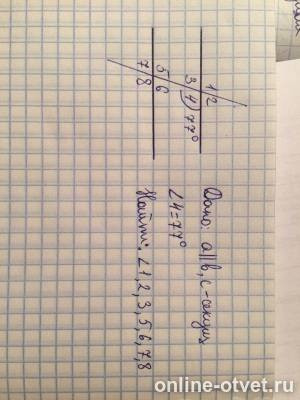 1 2
3 4 77°
5 6
7 8
Дано: a∥b, c-секущ.
∠4=77°
Найти: ∠1,2,3,5,6,7,8
online-otvet.ru